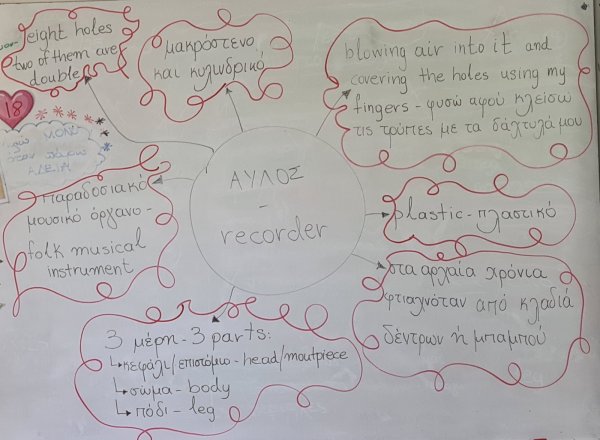 eight holes
two of them are
double
μακρόστενο
και κυλινδρικό
blowing air into it and
covering the holes using my
fingers - φυσώ αφού κλείσω
τις τρύπες με τα δάχτυλά μου
18
ΜΟΝΟ
ΑΔΕΙΑ
ΑΥΛΟΣ
-
recorder
παραδοσιακό
μουσικό όργανο -
folk musical
instrument
plastic - πλαστικό
στα αρχαία χρόνια
φτιαχνόταν από κλαδιά
δέντρων ή μπαμπού
3 μέρη - 3 parts:
↳κεφάλι/επιστόμιο - head/moutpiece
↳σώμα - body
↳πόδι - leg